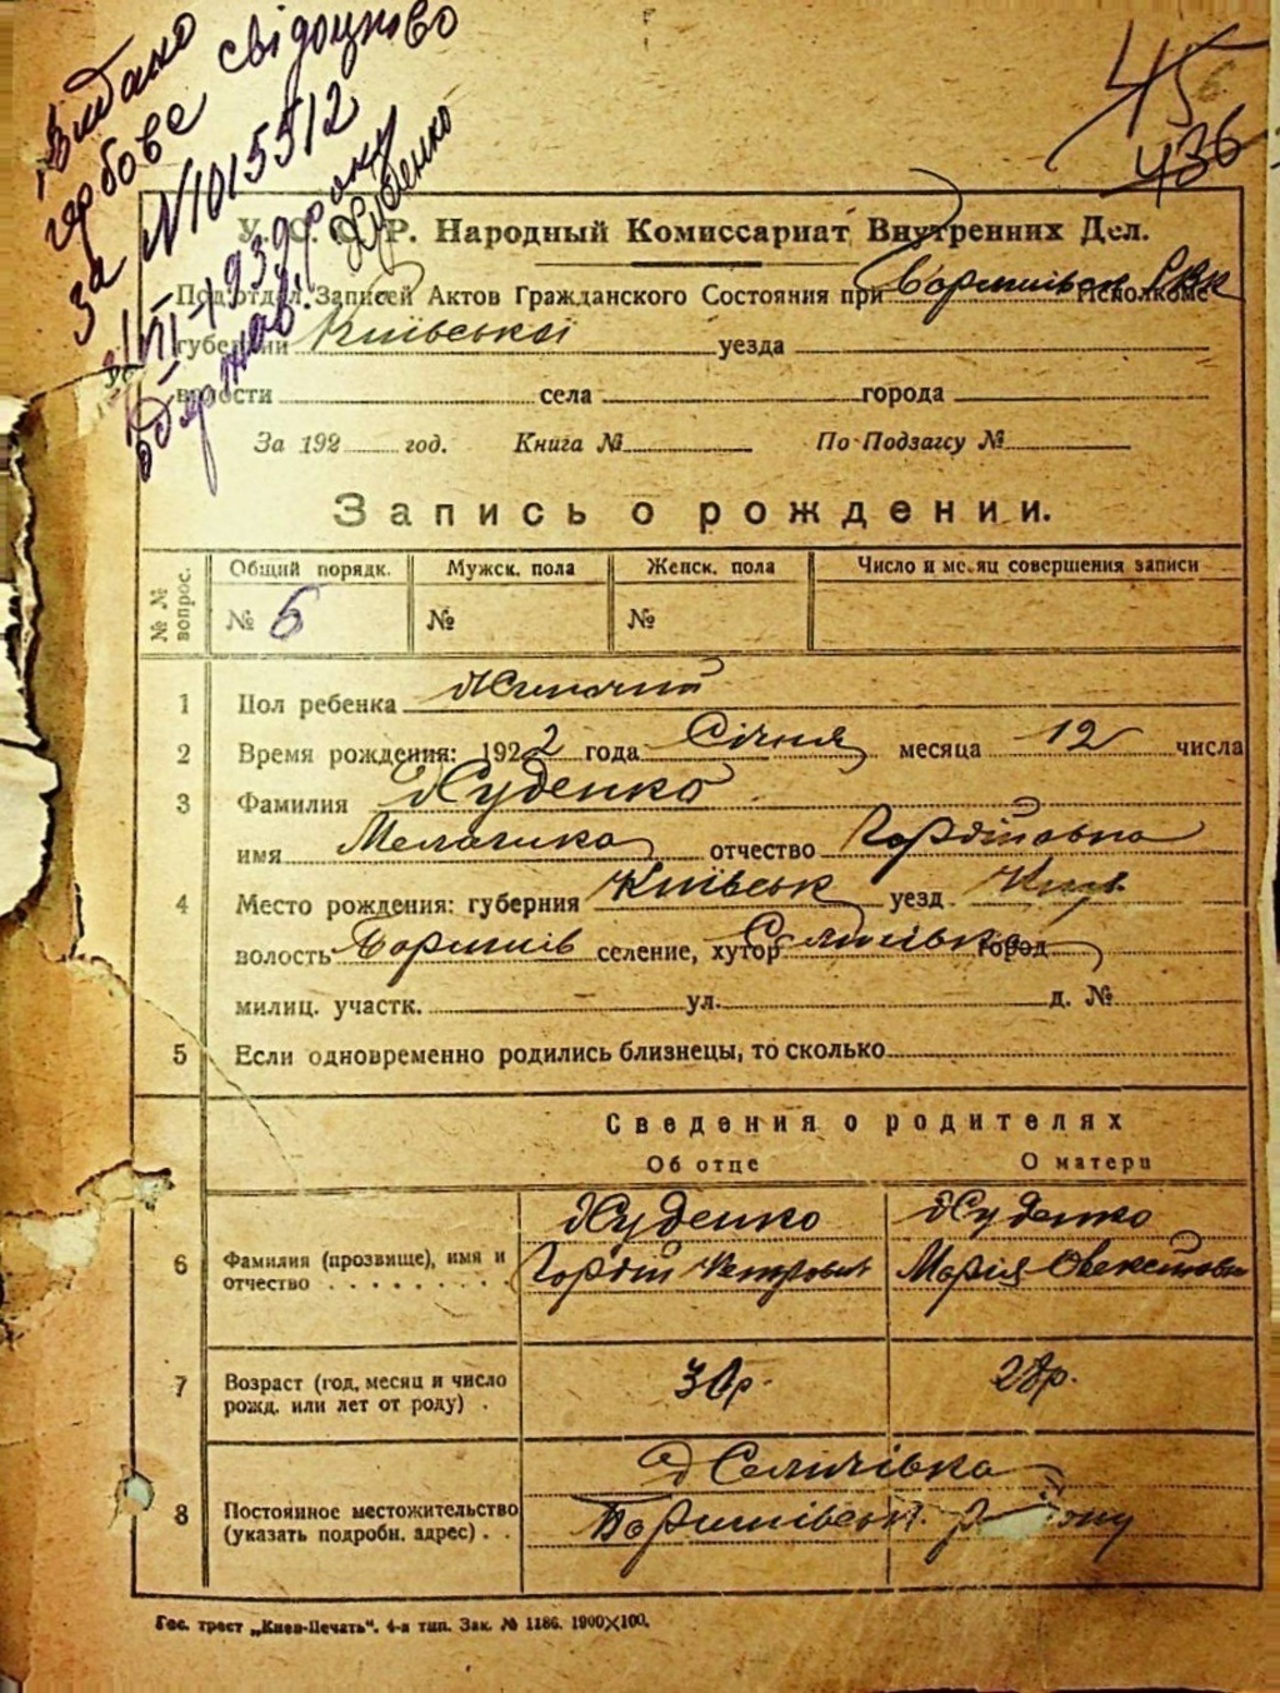 Видано
гербове свідоцтво
за № 1015512
VII-1939 року
Худенко
45
436
У. С. С. Р. Народный Комиссариат Внутренних Дел.
Подотдел Записей Актов Гражданского Состояния при Исполкоме
губернии Київської уезда
волости села города
За 192 год. Книга № По Подзагсу №
Запись о рождении.
№ № вопрос. Общий порядк. Мужск. пола Женск. пола Число и месяц совершения записи
№ 6 № №
1 Пол ребенка Жиночий
2 Время рождения: 1922 года Січня месяца 12 числа
3 Фамилия Худенко
имя отчество Гордіївна
4 Место рождения: губерния Київськ уезд Київ.
волость селение, хутор Селичівка город
милиц. участк. ул. д. №
5 Если одновременно родились близнецы, то сколько
Сведения о родителях
Об отце О матери
Худенко Худенко
6 Фамилия (прозвище), имя и отчество Гордій Петрович Марія
7 Возраст (год, месяц и число рожд. или лет от роду) 30р. 28р.
Селичівка
8 Постоянное местожительство (указать подробн. адрес)
Гос. трест „Киев-Печать“. 4-я тип. Зак. № 1186. 1900×100.